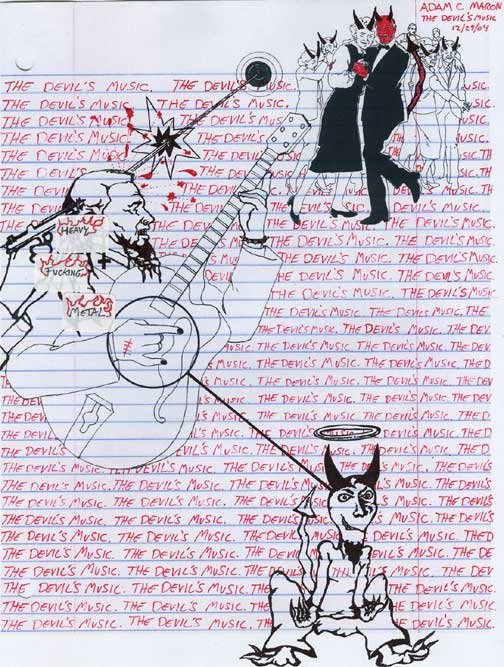 ADAM C MARON
THE DEVIL'S MUSIC
12/29/04
THE DEVIL'S MUSIC. THE DEVIL'S MUSIC. USIC.
THE DEVIL'S MUSIC. THE DEVIL'S MUSIC. USIC.
THE DEVIL'S MUSIC. THE DEVIL'S MUSIC.
THE DEVIL'S MUSIC THE DEVIL'S MUSIC. TH USIC.
THE DEVIL'S MUSIC THE DEVIL'S MUSIC. THE
THE DEVIL'S THE DEVIL'S MUSIC.
THE DEVIL'S THE DEV
THE DEVIL'S MUSIC. THE DEVIL'S MUSIC.
HEAVY
THE DEVIL'S MUSIC. THE DEVIL'S MUSIC.
THE DE MUSIC. THE DEVIL'S MUSIC. THE DEVIL'S
THE DEVIL'S MUSIC. THE DEVIL'S MUSIC.
FUCKING
DEVIL MUSIC. THE DEVIL'S MUSIC
THE DEVIL'S MUSIC. THE DEVIL'S MUSIC.
METAL
THE DEVIL'S MUSIC. THE DEVIL'S MUSIC. THE
THE DEVIL'S MUSIC. THE DEVIL'S MUSIC. THE DEV.
MUSIC. THE DEVIL'S MUSIC. THE DEVIL'S MUSIC. THE DEV
MUSIC. THE DEVIL'S MUSIC. THE DEVIL'S MUSIC. THE D
THE DEVIL'S MUSIC. THE DEVIL'S MUSIC. THE DEV
THE DEV THE DEVIL'S MUSIC. THE DEVIL'S MUSIC. THE DEV
THE DEV MUSIC. THE DEVIL'S MUSIC. THE D
THE DEVIL'S MUSIC. THE DEVIL'S MUSIC. THE D
THE DEVIL'S THE DEVIL'S MUSIC. THE DEVIL'S MUSIC. THE D
THE DEVIL'S MUSIC. THE DEVIL'S MUSIC. THE DEVIL'S MUSIC. THE DEV
THE DEVIL'S MUSIC. THE DEVIL'S MUSIC. THE DEVIL'S MUSIC. THE DEV
THE DEVIL'S MUSIC. THE DEVIL'S MUSIC. THE DEVIL'S
THE DEVIL'S MUSIC. THE DEVIL'S MUSIC. THE DEVIL'S
THE DEVIL'S MUSIC. THE DEVIL'S MUSIC. THE D
THE DEVIL'S MUSIC. THE DEVIL'S MUSIC. THE DE
THE DEVIL'S MUSIC. THE DEVIL'S MUSIC. THE DEV
THE DEVIL'S MUSIC. THE DEVIL'S MUSIC. THE DEVIL'S
THE DEVIL'S MUSIC. THE DEVIL'S MUSIC. THE DEV
THE DEVIL'S MUSIC. THE DEVIL'S MUSIC. THE DEV